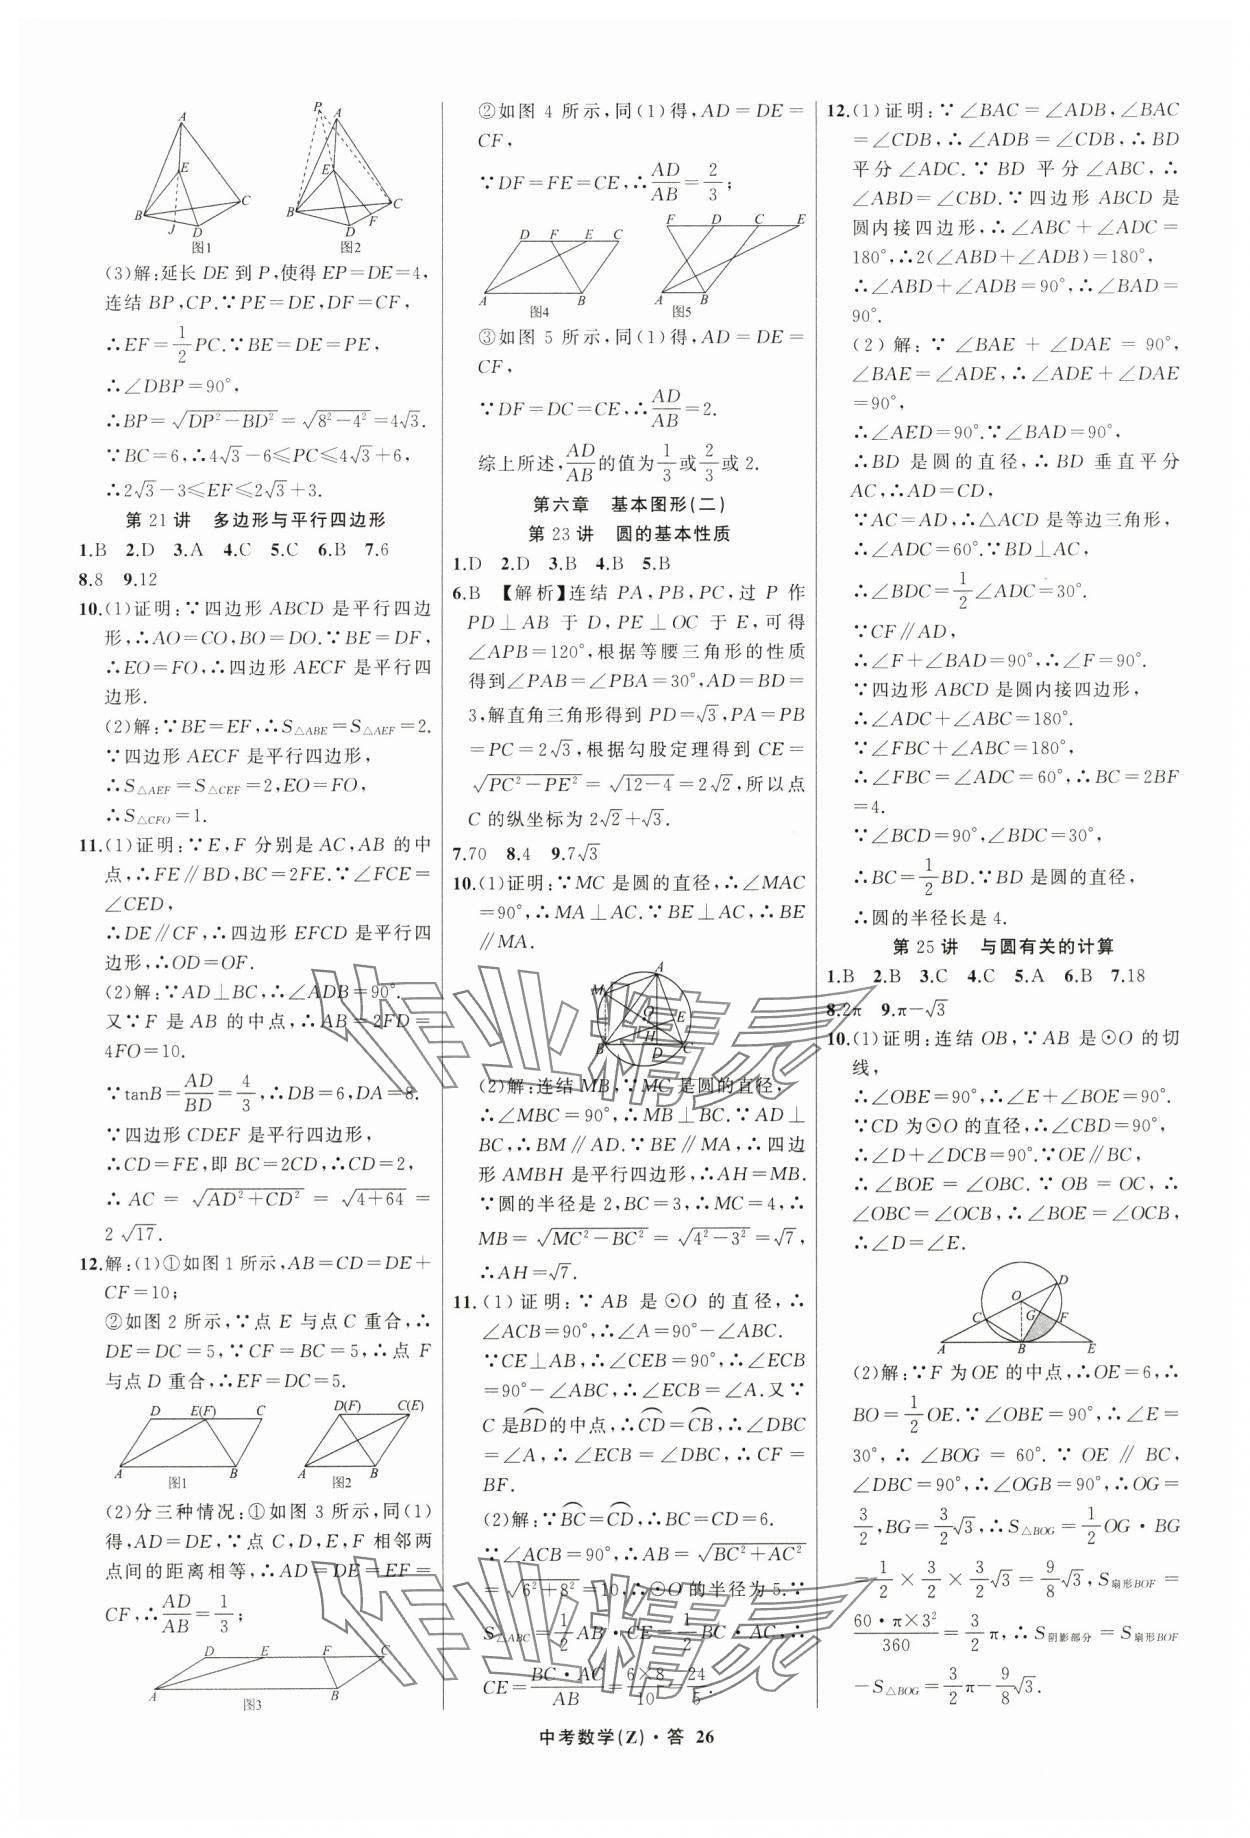 A
E
B
C
J
D
图1
P
A
E
B
C
F
D
图2
(3)解:延长 DE 到 P,使得 EP=DE=4,
连结 BP,CP.∵PE=DE,DF=CF,
∴EF=1/2PC.∵BE=DE=PE,
∴∠DBP=90°,
∴BP=√(DP²-BD²)=√(8²-4²)=4√3.
∵BC=6,∴4√3-6≤PC≤4√3+6,
∴2√3-3≤EF≤2√3+3.
第 21 讲 多边形与平行四边形
1.B 2.D 3.A 4.C 5.C 6.B 7.6
8.8 9.12
10.(1)证明:∵四边形 ABCD 是平行四边
形,∴AO=CO,BO=DO.∵BE=DF,
∴EO=FO,∴四边形 AECF 是平行四
边形.
(2)解:∵BE=EF,∴S△ABE=S△AEF=2.
∵四边形 AECF 是平行四边形,
∴S△AEF=S△CEF=2,EO=FO,
∴S△CFO=1.
11.(1)证明:∵E,F 分别是 AC,AB 的中
点,∴FE∥BD,BC=2FE.∵∠FCE=
∠CED,
∴DE∥CF,∴四边形 EFCD 是平行四
边形,∴OD=OF.
(2)解:∵AD⊥BC,∴∠ADB=90°.
又∵F 是 AB 的中点,∴AB=2FD=
4FO=10.
∵tanB=AD/BD=4/3,∴DB=6,DA=8.
∵四边形 CDEF 是平行四边形,
∴CD=FE,即 BC=2CD,∴CD=2,
∴AC=√(AD²+CD²)=√(4+64)=
2√17.
12.解:(1)①如图 1 所示,AB=CD=DE+
CF=10;
②如图 2 所示,∵点 E 与点 C 重合,∴
DE=DC=5,∵CF=BC=5,∴点 F
与点 D 重合,∴EF=DC=5.
D E(F) C
A B
图1
D(F) C(E)
A B
图2
(2)分三种情况:①如图 3 所示,同(1)
得,AD=DE,∵点 C,D,E,F 相邻两
点间的距离相等,∴AD=DE=EF=
CF,∴AD/AB=1/3;
D E F C
A B
图3
②如图 4 所示,同(1)得,AD=DE=
CF,
∵DF=FE=CE,∴AD/AB=2/3;
D F E C
A B
图4
F D C E
A B
图5
③如图 5 所示,同(1)得,AD=DE=
CF,
∵DF=DC=CE,∴AD/AB=2.
综上所述,AD/AB的值为1/3或2/3或2.
第六章 基本图形(二)
第 23 讲 圆的基本性质
1.D 2.D 3.B 4.B 5.B
6.B 【解析】连结 PA,PB,PC,过 P 作
PD⊥AB 于 D,PE⊥OC 于 E,可得
∠APB=120°,根据等腰三角形的性质
得到∠PAB=∠PBA=30°,AD=BD=
3,解直角三角形得到 PD=√3,PA=PB
=PC=2√3,根据勾股定理得到 CE=
√(PC²-PE²)=√(12-4)=2√2,所以点
C 的纵坐标为 2√2+√3.
7.70 8.4 9.7√3
10.(1)证明:∵MC 是圆的直径,∴∠MAC
=90°,∴MA⊥AC.∵BE⊥AC,∴BE
∥MA.
A
M
O
E
H
B
D
C
(2)解:连结 MB,∵MC 是圆的直径,
∴∠MBC=90°,∴MB⊥BC.∵AD⊥
BC,∴BM∥AD.∵BE∥MA,∴四边
形 AMBH 是平行四边形,∴AH=MB.
∵圆的半径是 2,BC=3,∴MC=4,∴
MB=√(MC²-BC²)=√(4²-3²)=√7,
∴AH=√7.
11.(1)证明:∵AB 是⊙O 的直径,∴
∠ACB=90°,∴∠A=90°-∠ABC.
∵CE⊥AB,∴∠CEB=90°,∴∠ECB
=90°-∠ABC,∴∠ECB=∠A.又∵
C 是BD⌒的中点,∴CD⌒=CB⌒,∴∠DBC
=∠A,∴∠ECB=∠DBC,∴CF=
BF.
(2)解:∵BC⌒=CD⌒,∴BC=CD=6.
∵∠ACB=90°,∴AB=√(BC²+AC²)
=√(6²+8²)=10,∴⊙O 的半径为 5.∵
S△ABC=1/2AB·CE=1/2BC·AC,∴
CE=BC·AC/AB=6×8/10=24/5.
12.(1)证明:∵∠BAC=∠ADB,∠BAC
=∠CDB,∴∠ADB=∠CDB,∴BD
平分∠ADC.∵BD 平分∠ABC,∴
∠ABD=∠CBD.∵四边形 ABCD 是
圆内接四边形,∴∠ABC+∠ADC=
180°,∴2(∠ABD+∠ADB)=180°,
∴∠ABD+∠ADB=90°,∴∠BAD=
90°.
(2)解:∵∠BAE+∠DAE=90°,
∠BAE=∠ADE,∴∠ADE+∠DAE
=90°,
∴∠AED=90°.∵∠BAD=90°,
∴BD 是圆的直径,∴BD 垂直平分
AC,∴AD=CD,
∵AC=AD,∴△ACD 是等边三角形,
∴∠ADC=60°.∵BD⊥AC,
∴∠BDC=1/2∠ADC=30°.
∵CF∥AD,
∴∠F+∠BAD=90°,∴∠F=90°.
∵四边形 ABCD 是圆内接四边形,
∴∠ADC+∠ABC=180°.
∵∠FBC+∠ABC=180°,
∴∠FBC=∠ADC=60°,∴BC=2BF
=4.
∵∠BCD=90°,∠BDC=30°,
∴BC=1/2BD.∵BD 是圆的直径,
∴圆的半径长是 4.
第 25 讲 与圆有关的计算
1.B 2.B 3.C 4.C 5.A 6.B 7.18
8.2π 9.π-√3
10.(1)证明:连结 OB,∵AB 是⊙O 的切
线,
∴∠OBE=90°,∴∠E+∠BOE=90°.
∵CD 为⊙O 的直径,∴∠CBD=90°,
∴∠D+∠DCB=90°.∵OE∥BC,
∴∠BOE=∠OBC.∵OB=OC,∴
∠OBC=∠OCB,∴∠BOE=∠OCB,
∴∠D=∠E.
D
O
C
G
F
A
B
E
(2)解:∵F 为 OE 的中点,∴OE=6,∴
BO=1/2OE.∵∠OBE=90°,∴∠E=
30°,∴∠BOG=60°.∵OE∥BC,
∠DBC=90°,∴∠OGB=90°,∴OG=
3/2,BG=3/2√3,∴S△BOG=1/2OG·BG
=1/2×3/2×3/2√3=9/8√3,S扇形BOF=
60·π×3²/360=3/2π,∴S阴影部分=S扇形BOF
-S△BOG=3/2π-9/8√3.
作业精灵
作业精灵
中考数学(Z)·答 26